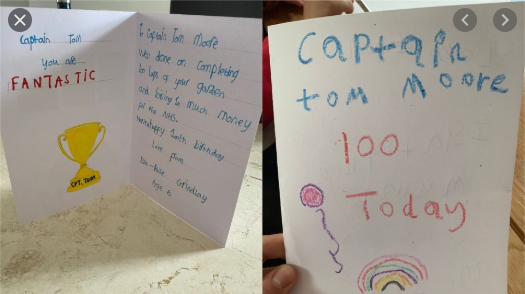 Captain Tom
you are...
FANTASTIC
CPT. TOM
Captain Tom Moore
Well done on completing
laps of your garden
and raising so much money
for the NHS.
happy 100th birthday
Love from
Age 6
Captain
tom Moore
100
Today